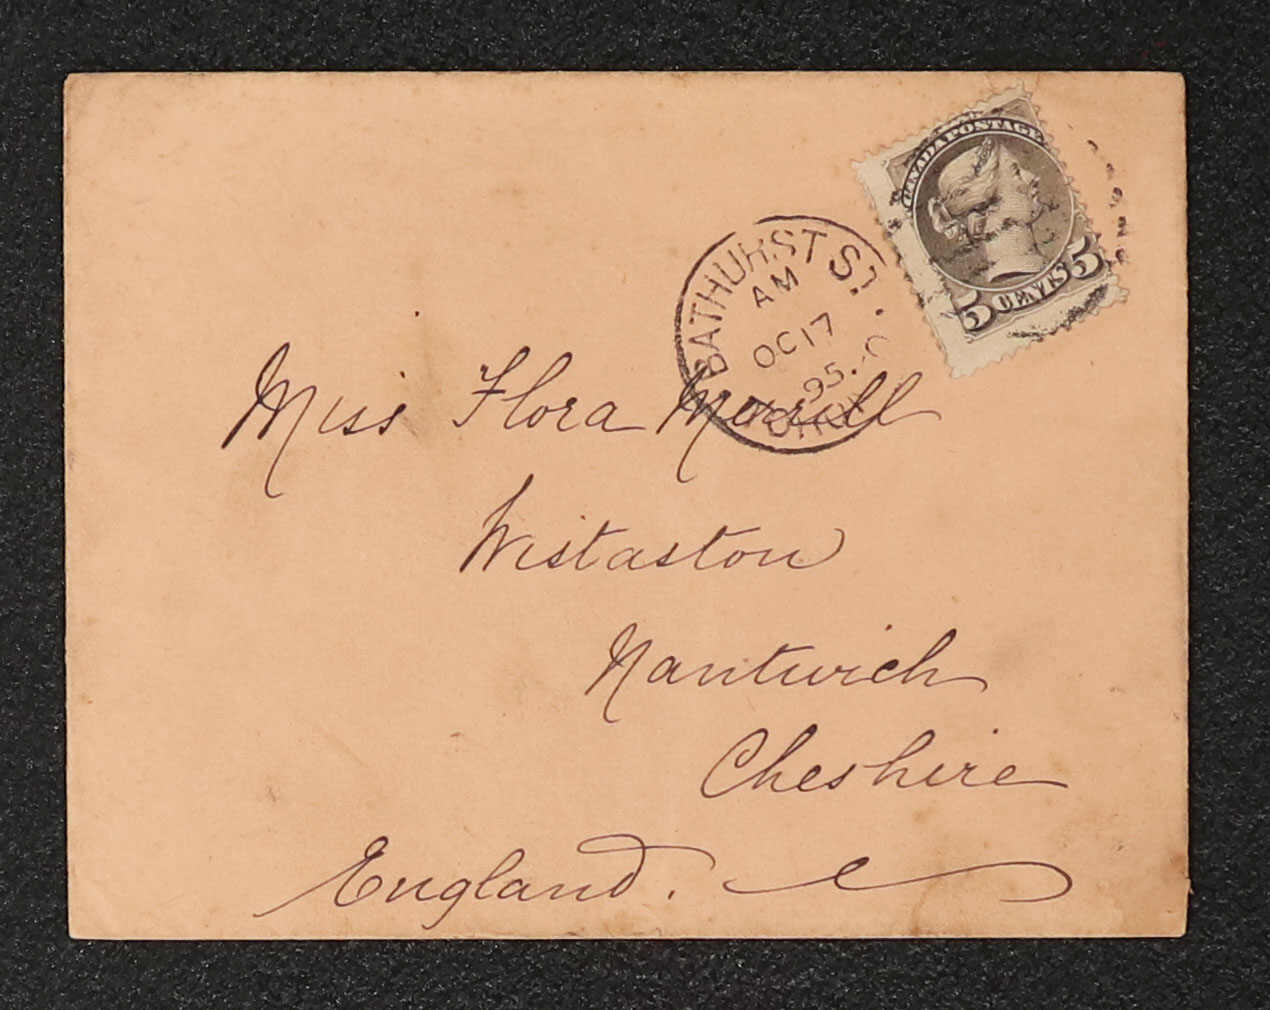 CANADA POSTAGE
5 CENTS 5
BATHURST ST.
AM
OC 17
95.
Miss Flora Merrill
Wistaston
Nantwich
Cheshire
England.